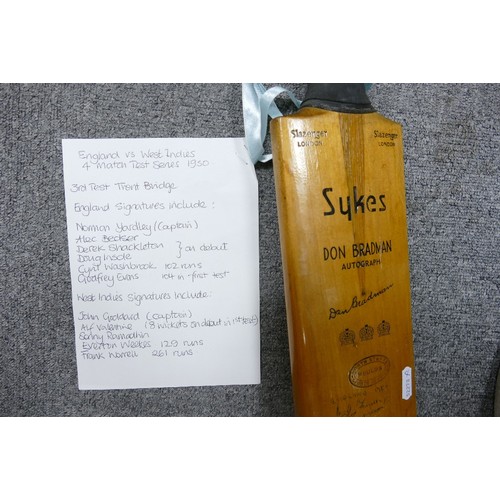 England vs West Indies
4 Match Test Series 1950
3rd Test Trent Bridge
England signatures include:
Norman Yardley (Captain)
Alec Bedser
Derek Shackleton
Doug Insole
} on debut
Cyril Washbrook 102 runs
Godfrey Evans 104 in first test
West Indies signatures include:
John Goddard (captain)
Alf Valentine (8 wickets on debut in 1st test)
Sonny Ramadhin
Everton Weekes 129 runs
Frank Worrell 261 runs
Slazenger
LONDON
Slazenger
LONDON
Sykes
DON BRADMAN
AUTOGRAPH
Don Bradman